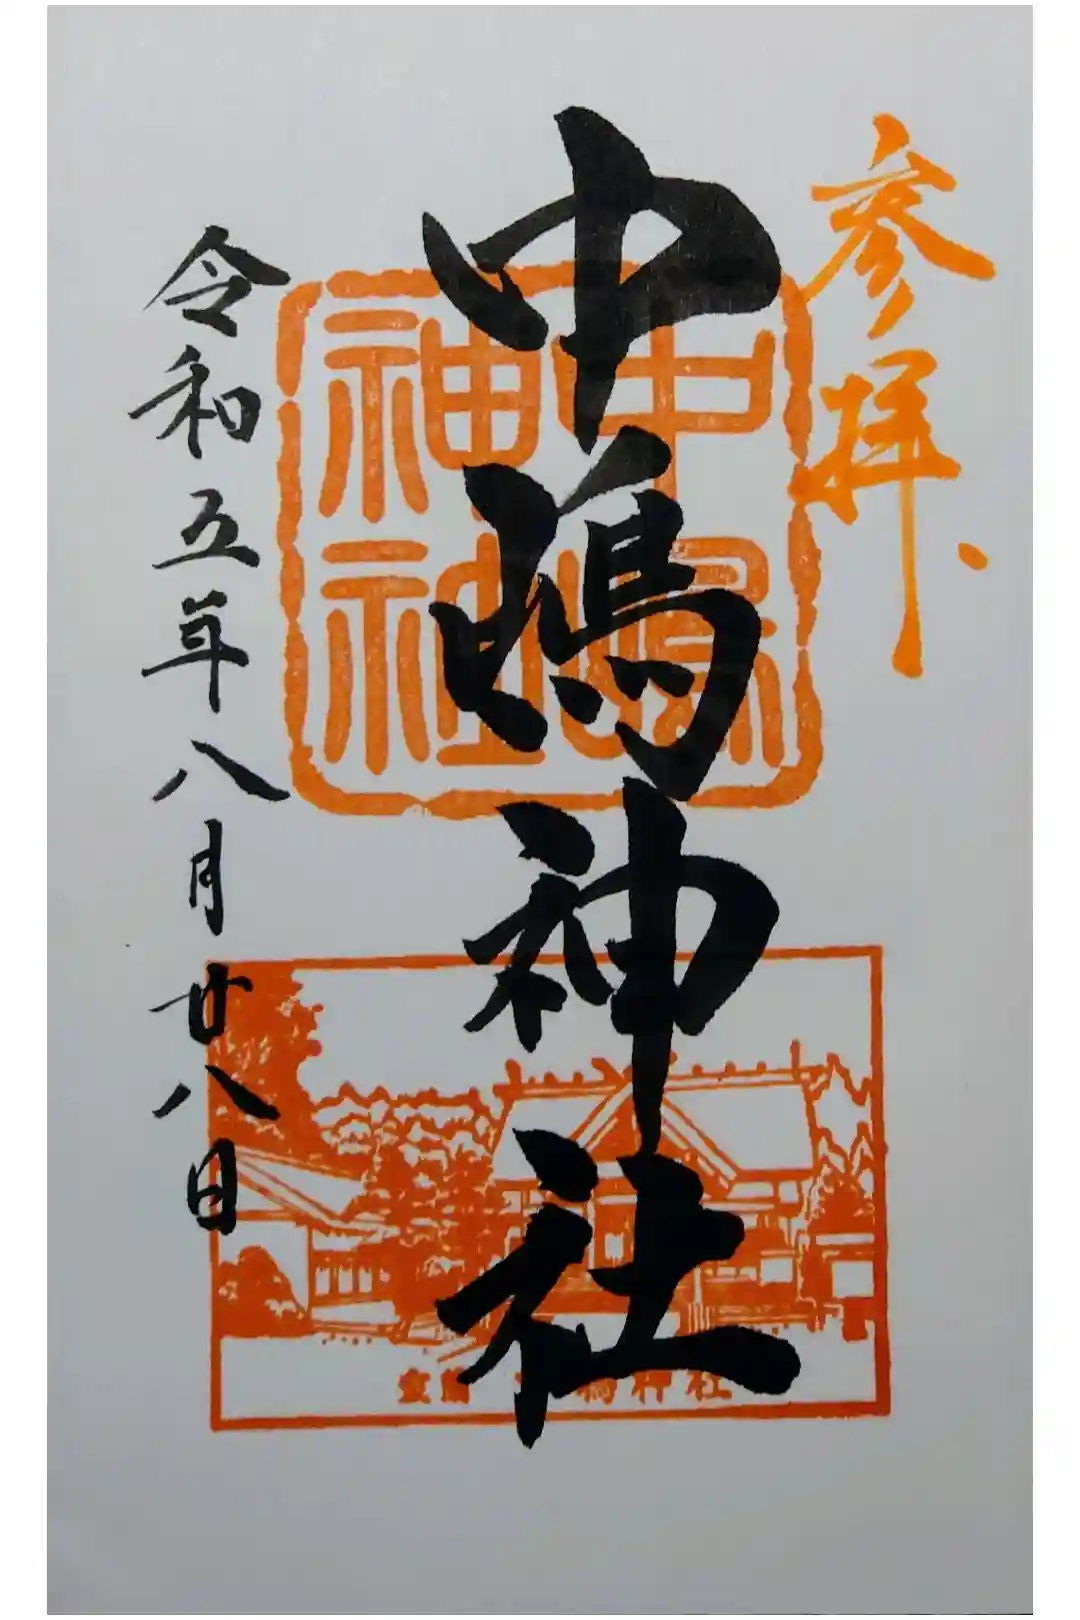 参拝、
中嶋神社
中嶋
神社
令和五年八月廿八日
室蘭 中嶋神社